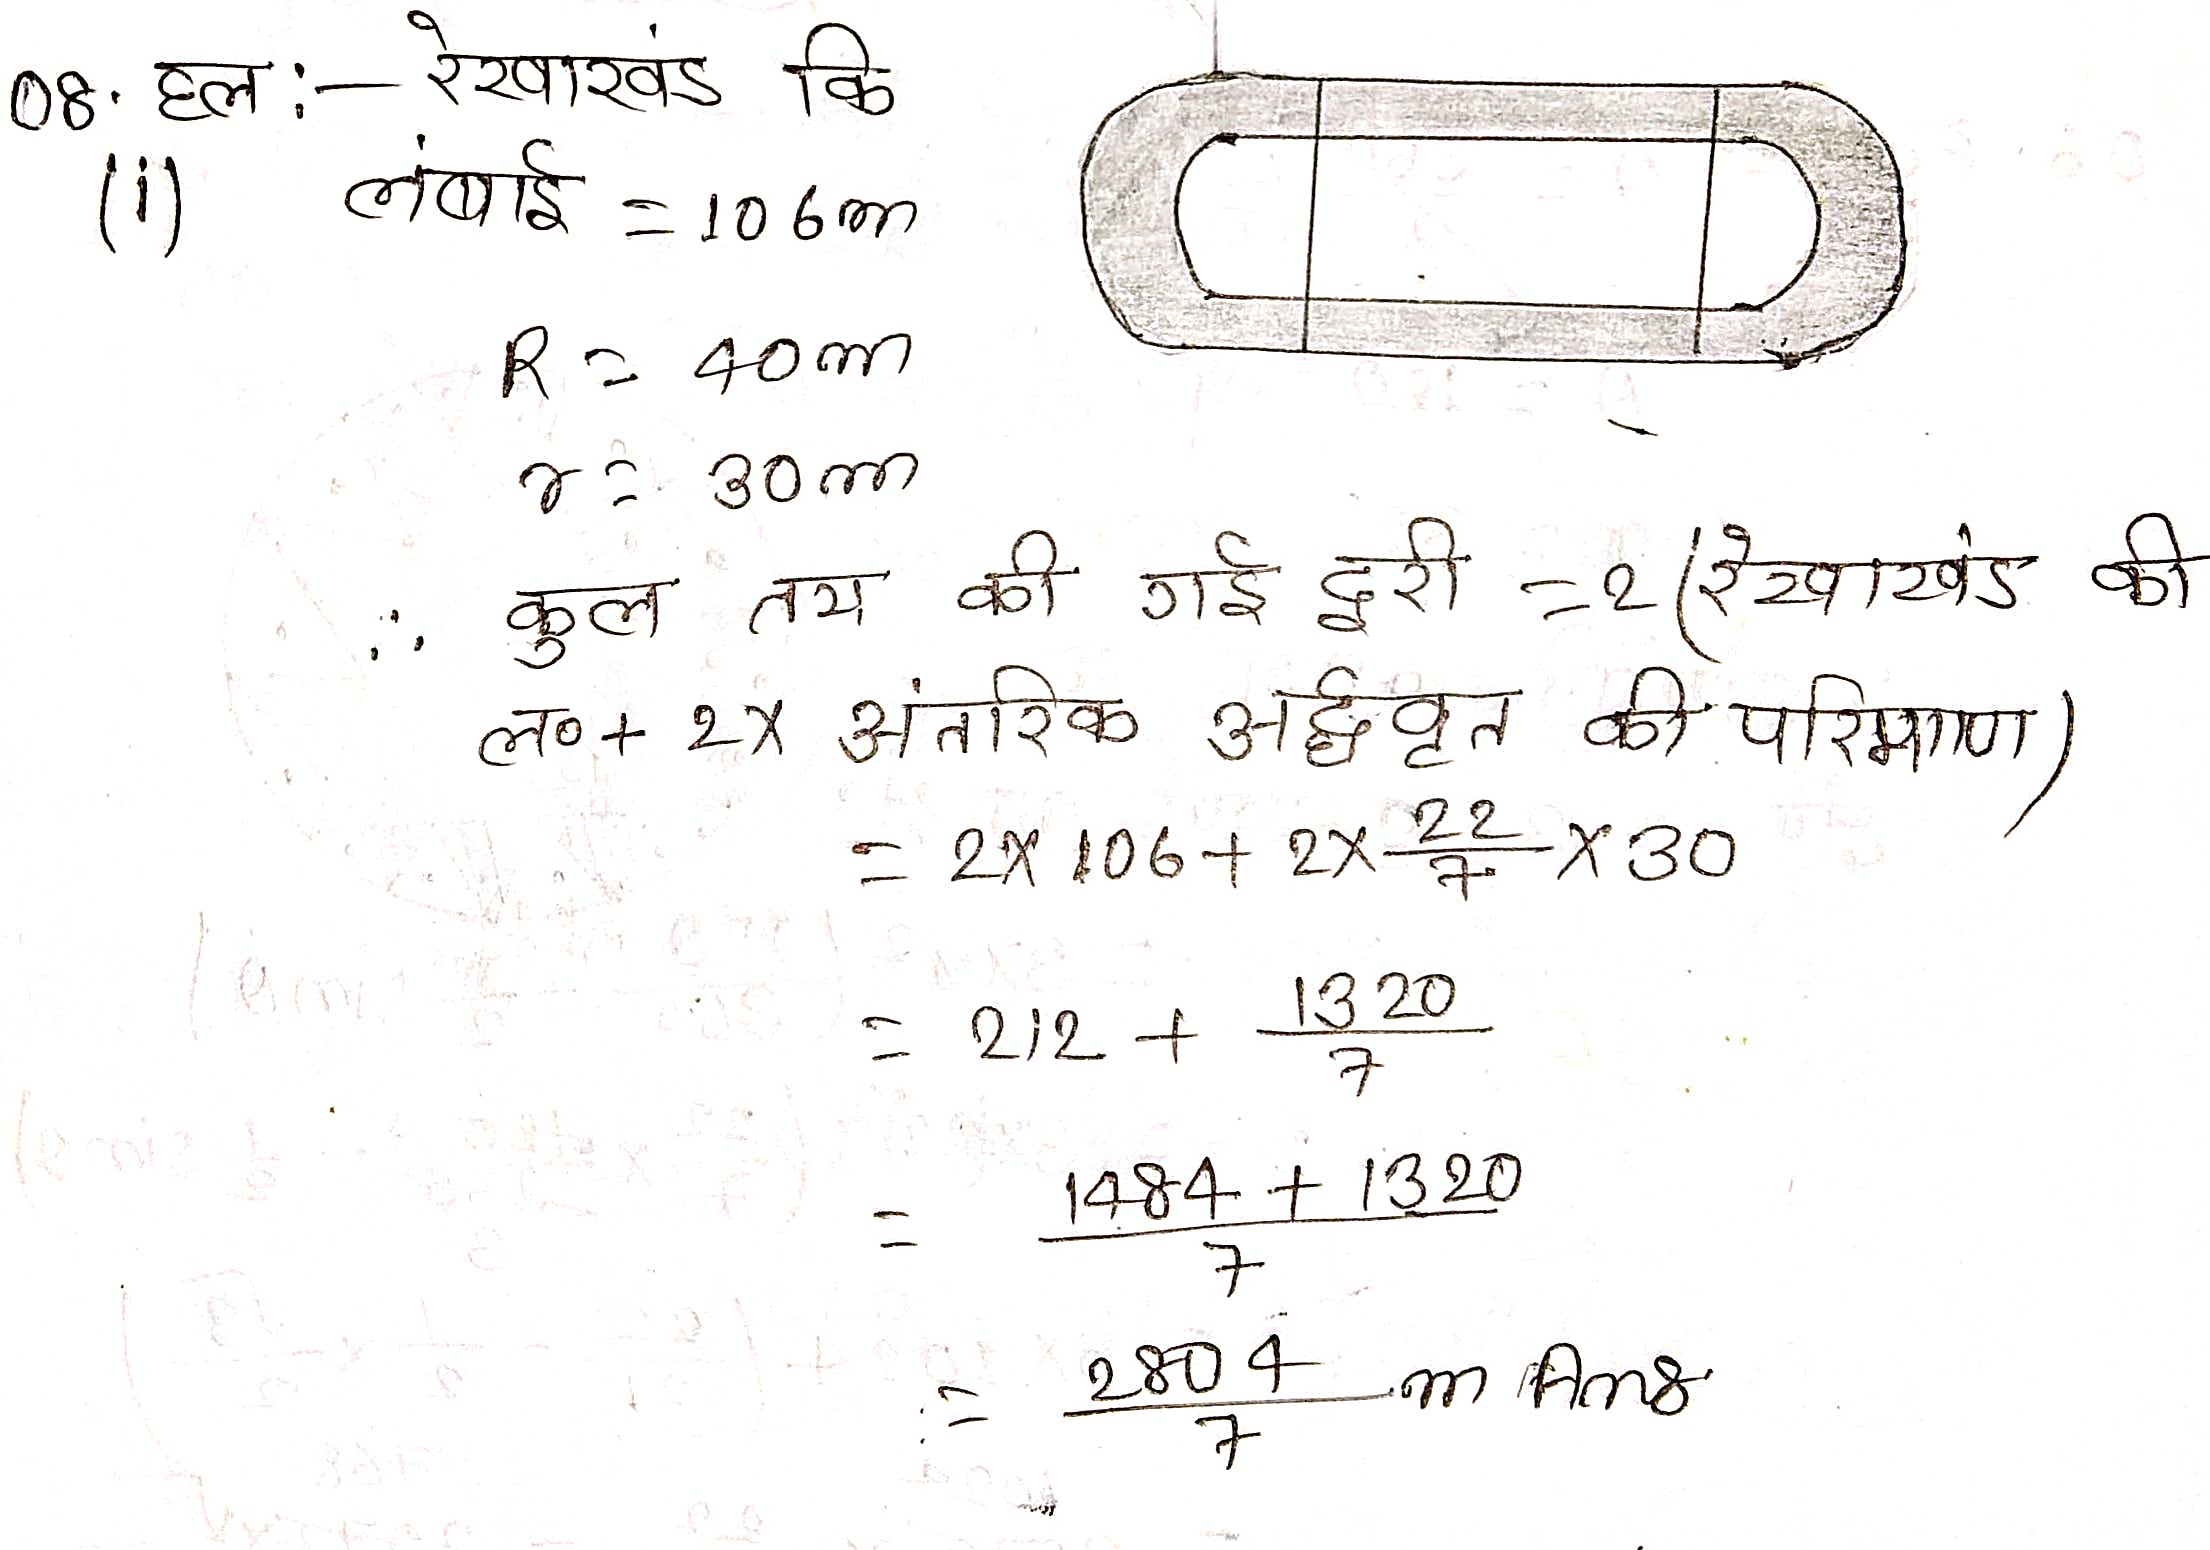 08. हल :- रेखाखंड कि
(i) लंबाई = 106m
R = 40m
r = 30m
∴ कुल तय की गई दुरी = 2(रेखाखंड की
ल० + 2x अंतरिक अर्द्धवृत की परिमाण)
= 2x 106 + 2x 22/7 x 30
= 212 + 1320/7
= 1484 + 1320/7
= 2804/7 m Ans